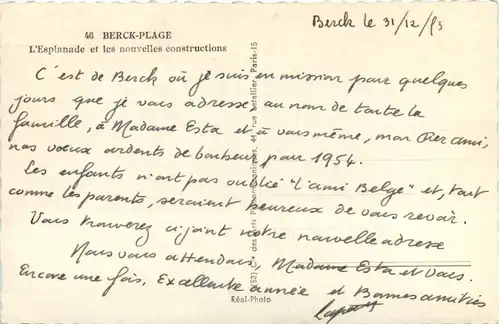 46 BERCK-PLAGE
L'Esplanade et les nouvelles constructions
Berck le 31/12/53
C'est de Berck où je suis en mission pour quelques
jours que je vous adresse, au nom de toute la
famille, à Madame Esta et à vous même, mon cher ami,
nos voeux ardents de bonheur pour 1954.
Les enfants n'ont pas oublié "l'ami Belge" et, tout
comme les parents, seraient heureux de vous revoir.
Vous trouverez ci-joint notre nouvelle adresse
Nous vous attendons, Madame Esta et vous.
Encore une fois, Excellente année et Bonnes amitiés
Réal-Photo
des Arts Photomécaniques, 44, rue Letellier, Paris-15